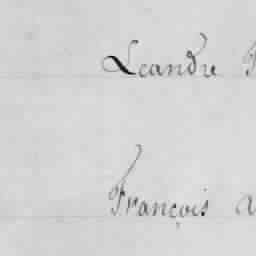 Leandre
François